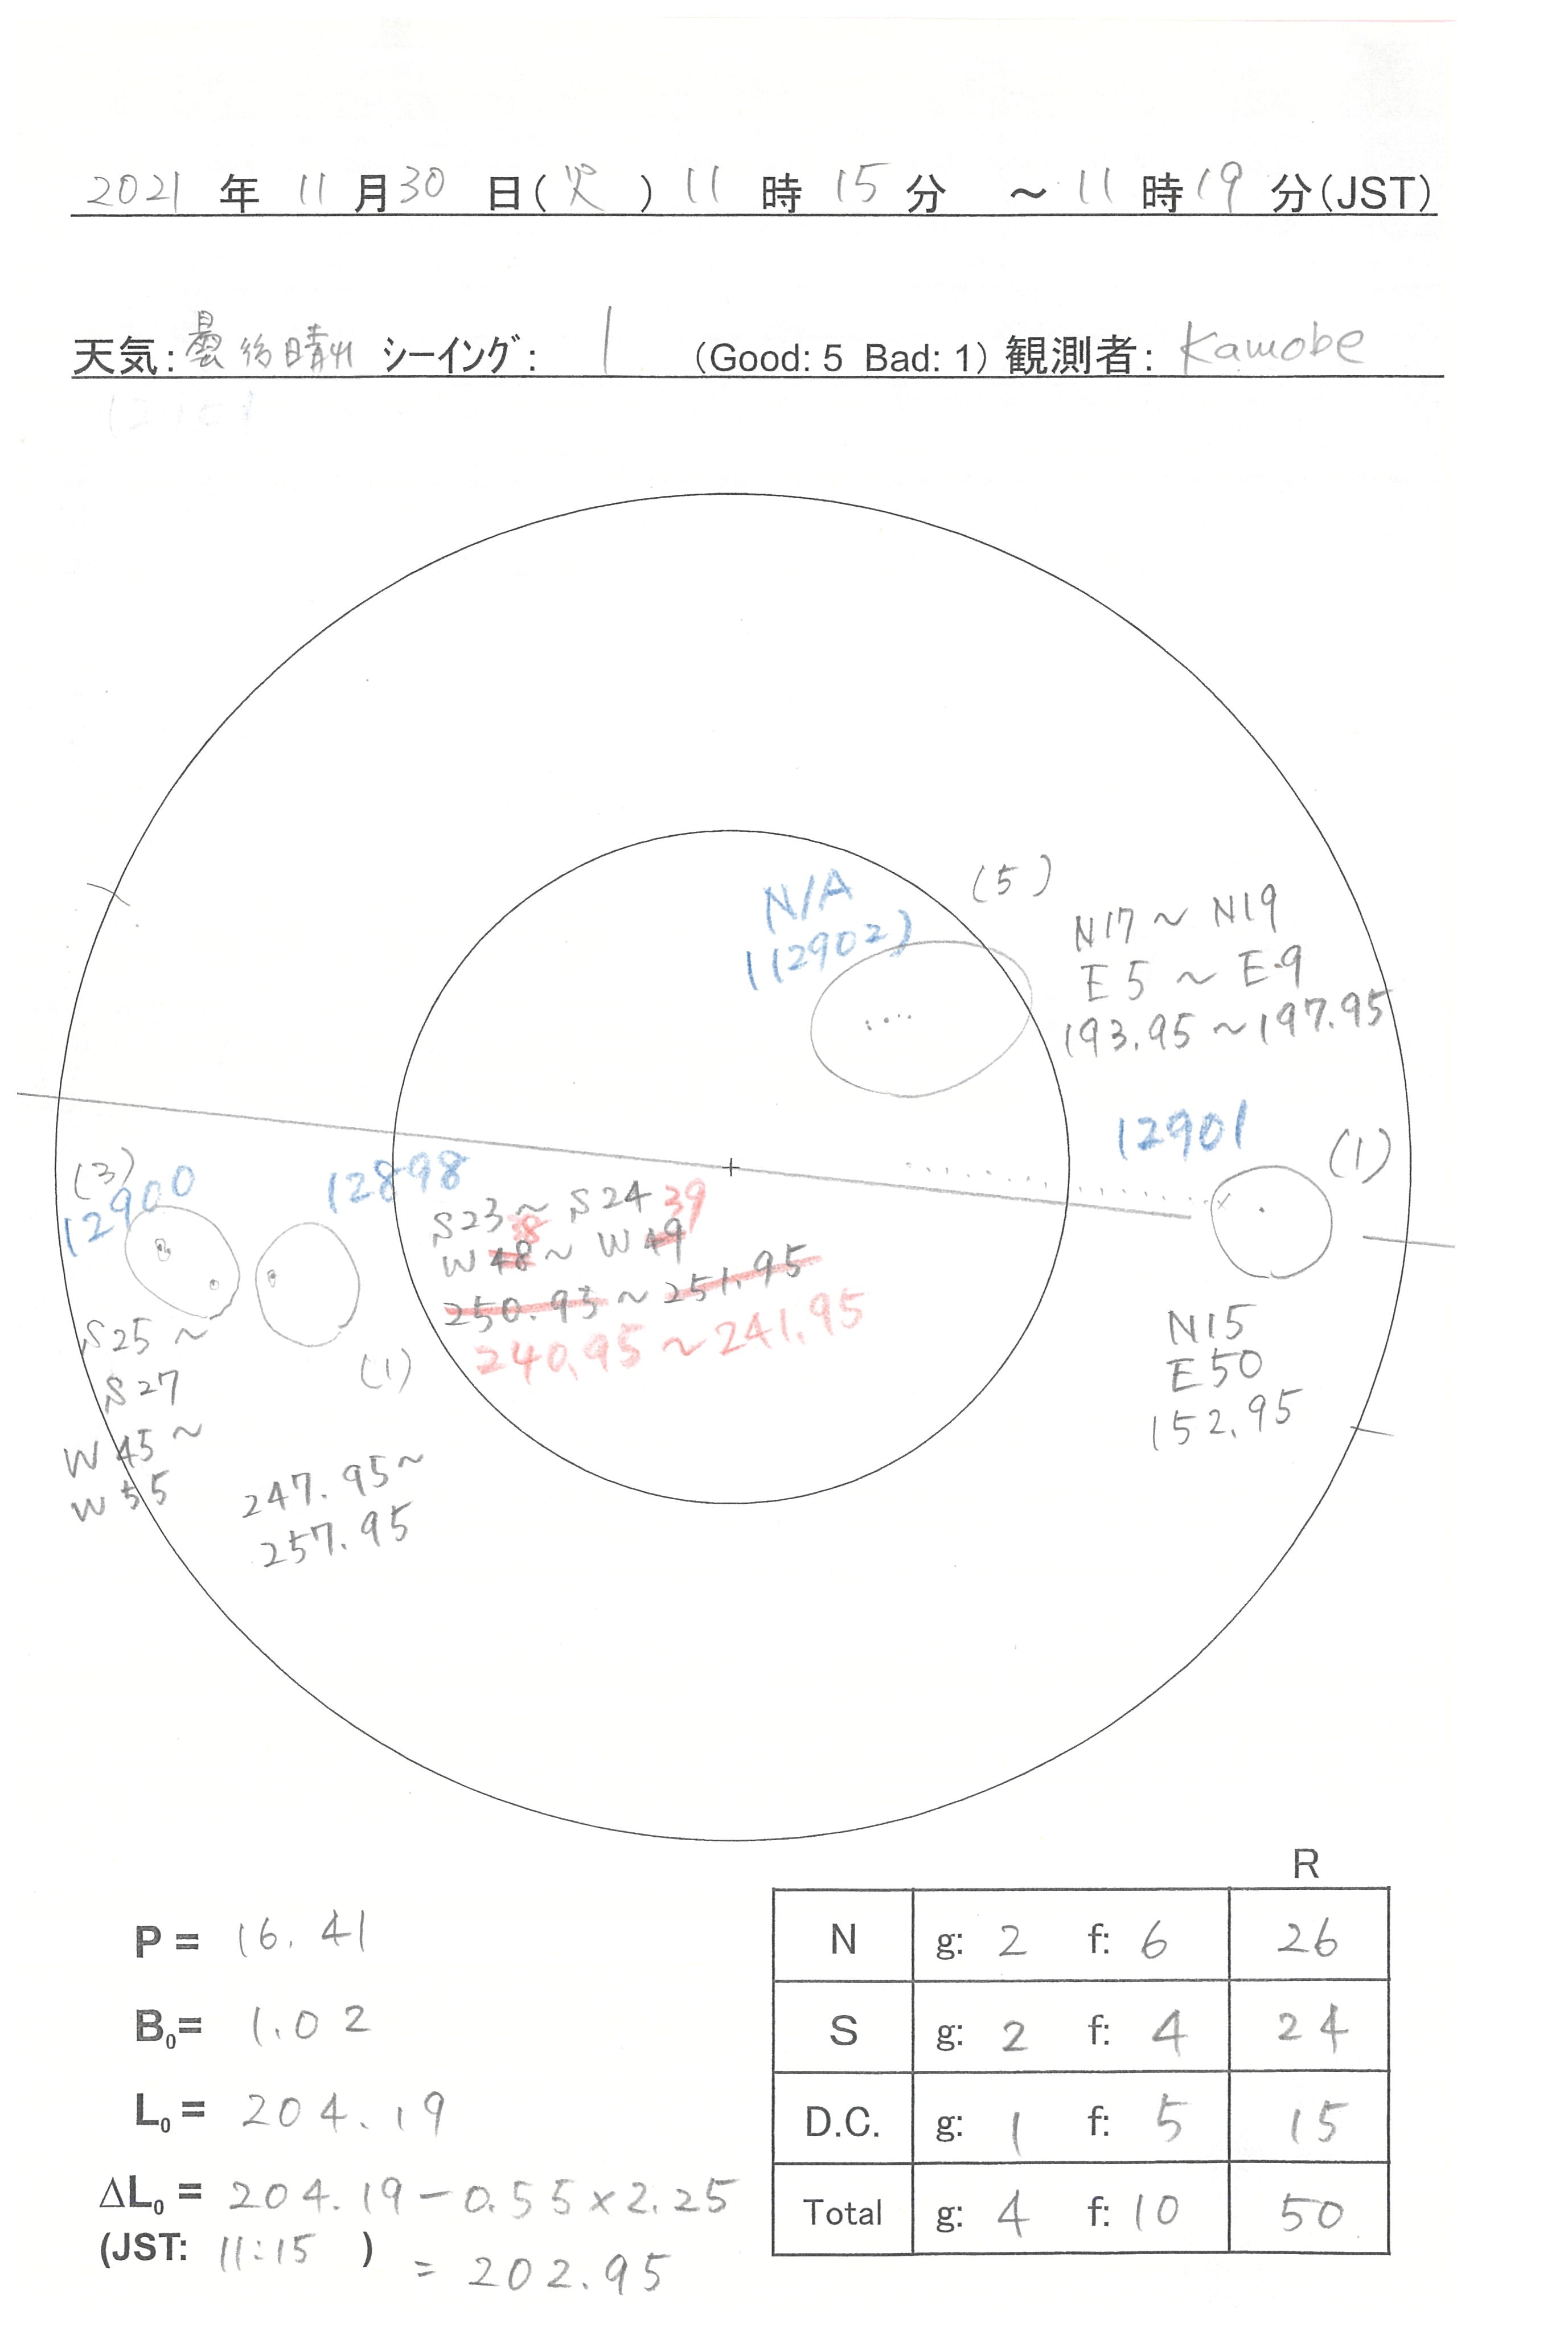 2021 年 11 月 30 日(火) 11 時 15 分 ～ 11 時 19 分(JST)
天気: 曇後晴れ シーイング: 1 (Good: 5 Bad: 1) 観測者: Kamobe
N/A
(12902)
(5)
N17 ~ N19
E5 ~ E9
193.95 ~ 197.95
12901
(1)
N15
E50
152.95
(3)
12900
S25 ~
S27
W45 ~
W55
247.95 ~
257.95
12898
(1)
S23 ~ S24
W 48 ~ W 49
38 39
250.95 ~ 251.95
240.95 ~ 241.95
P = 16.41
B0 = 1.02
L0 = 204.19
ΔL0 = 204.19 - 0.55 × 2.25
(JST: 11:15 ) = 202.95
R
N g: 2 f: 6 26
S g: 2 f: 4 24
D.C. g: 1 f: 5 15
Total g: 4 f: 10 50